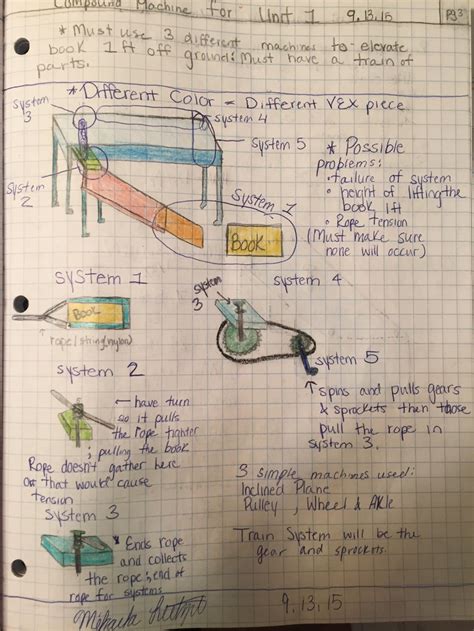 Compound Machine for Unit 1 9.13.15 Pg 3
* Must use 3 different machines to elevate
book 1 ft off ground: Must have a train of
parts.
* Different Color = Different VEX piece
System
3
System 4
System 5
* Possible
problems:
• failure of system
• height of lifting the
book 1 ft
• Rope tension
(Must make sure
none will occur)
System
2
System 1
BOOK
System 1
BOOK
rope/string(nylon)
System 4
System
3
System 5
↑ spins and pulls gears
& sprockets then those
pull the rope in
system 3.
System 2
← have turn
so it pulls
the rope tighter
; pulling the book
Rope doesn't gather here
that would cause
tension
System 3
* Ends rope
and collects
the rope; end of
rope for systems
3 simple machines used:
Inclined Plane
Pulley, Wheel & Axle
Train System will be the
gear and sprockets.
9.13.15